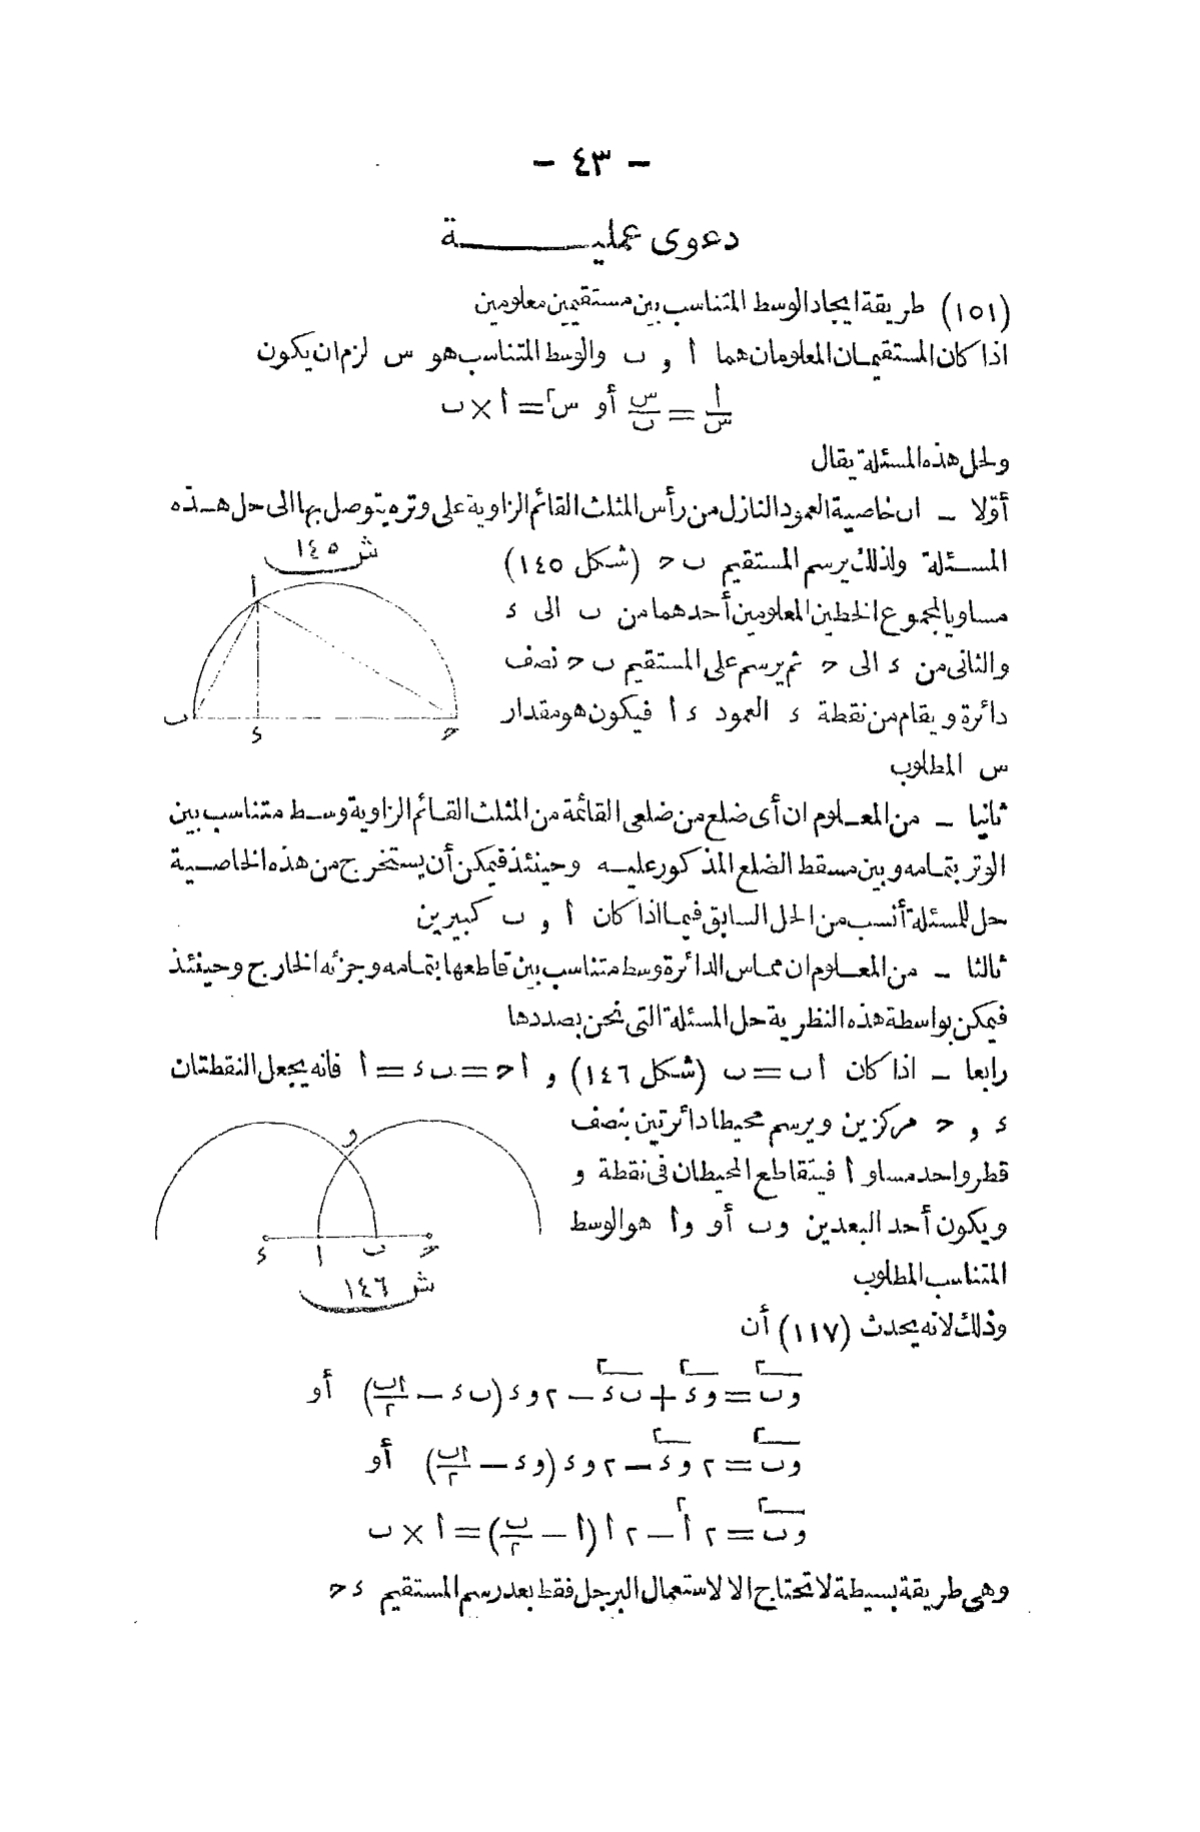 - ٤٣ -
دعوى عمليـــــة
(١٥١) طريقة ايجاد الوسط المتناسب بين مستقيمين معلومين
اذا كان المستقيمان المعلومان هما أ و ب والوسط المتناسب هو س لزم ان يكون
أ/س = س/ب أو س٢ = أ × ب
ولحل هذه المسئلة يقال
أوّلا - ان خاصية العمود النازل من رأس المثلث القائم الزاوية على وتره يتوصل بها الى حل هذه
المسئلة ولذلك يرسم المستقيم ب ح (شكل ١٤٥)
مساويا لمجموع الخطين المعلومين أحدهما من ب الى ء
والثانى من ء الى ح ثم يرسم على المستقيم ب ح نصف
دائرة ويقام من نقطة ء العمود ء أ فيكون هو مقدار
س المطلوب
ش ١٤٥
أ
ب
ء
ح
ثانيا - من المعلوم ان أى ضلع من ضلعى القائمة من المثلث القائم الزاوية وسط متناسب بين
الوتر بتمامه وبين مسقط الضلع المذكور عليه وحينئذ فيمكن أن يستخرج من هذه الخاصية
حل للمسئلة أنسب من الحل السابق فيما اذا كان أ و ب كبيرين
ثالثا - من المعلوم ان مماس الدائرة وسط متناسب بين قاطعها بتمامه وجزئه الخارج وحينئذ
فيمكن بواسطة هذه النظرية حل المسئلة التى نحن بصددها
رابعا - اذا كان أب = ب (شكل ١٤٦) و أح = ب ء = أ فانه يجعل النقطتان
ء و ح مركزين ويرسم محيطا دائرتين بنصف
قطر واحد مساو أ فيتقاطع المحيطان فى نقطة و
ويكون أحد البعدين وب أو وأ هو الوسط
المتناسب المطلوب
و
ء
أ
ب
ح
ش ١٤٦
وذلك لانه يحدث (١١٧) أن
وب٢ = وء٢ + بء٢ - ٢ وء (بء - أب/٢) أو
وب٢ = ٢ وء٢ - ٢ وء (وء - أب/٢) أو
وب٢ = ٢ أ٢ - ٢ أ (أ - ب/٢) = أ × ب
وهى طريقة بسيطة لا تحتاج الا لاستعمال البرجل فقط بعد رسم المستقيم ء ح